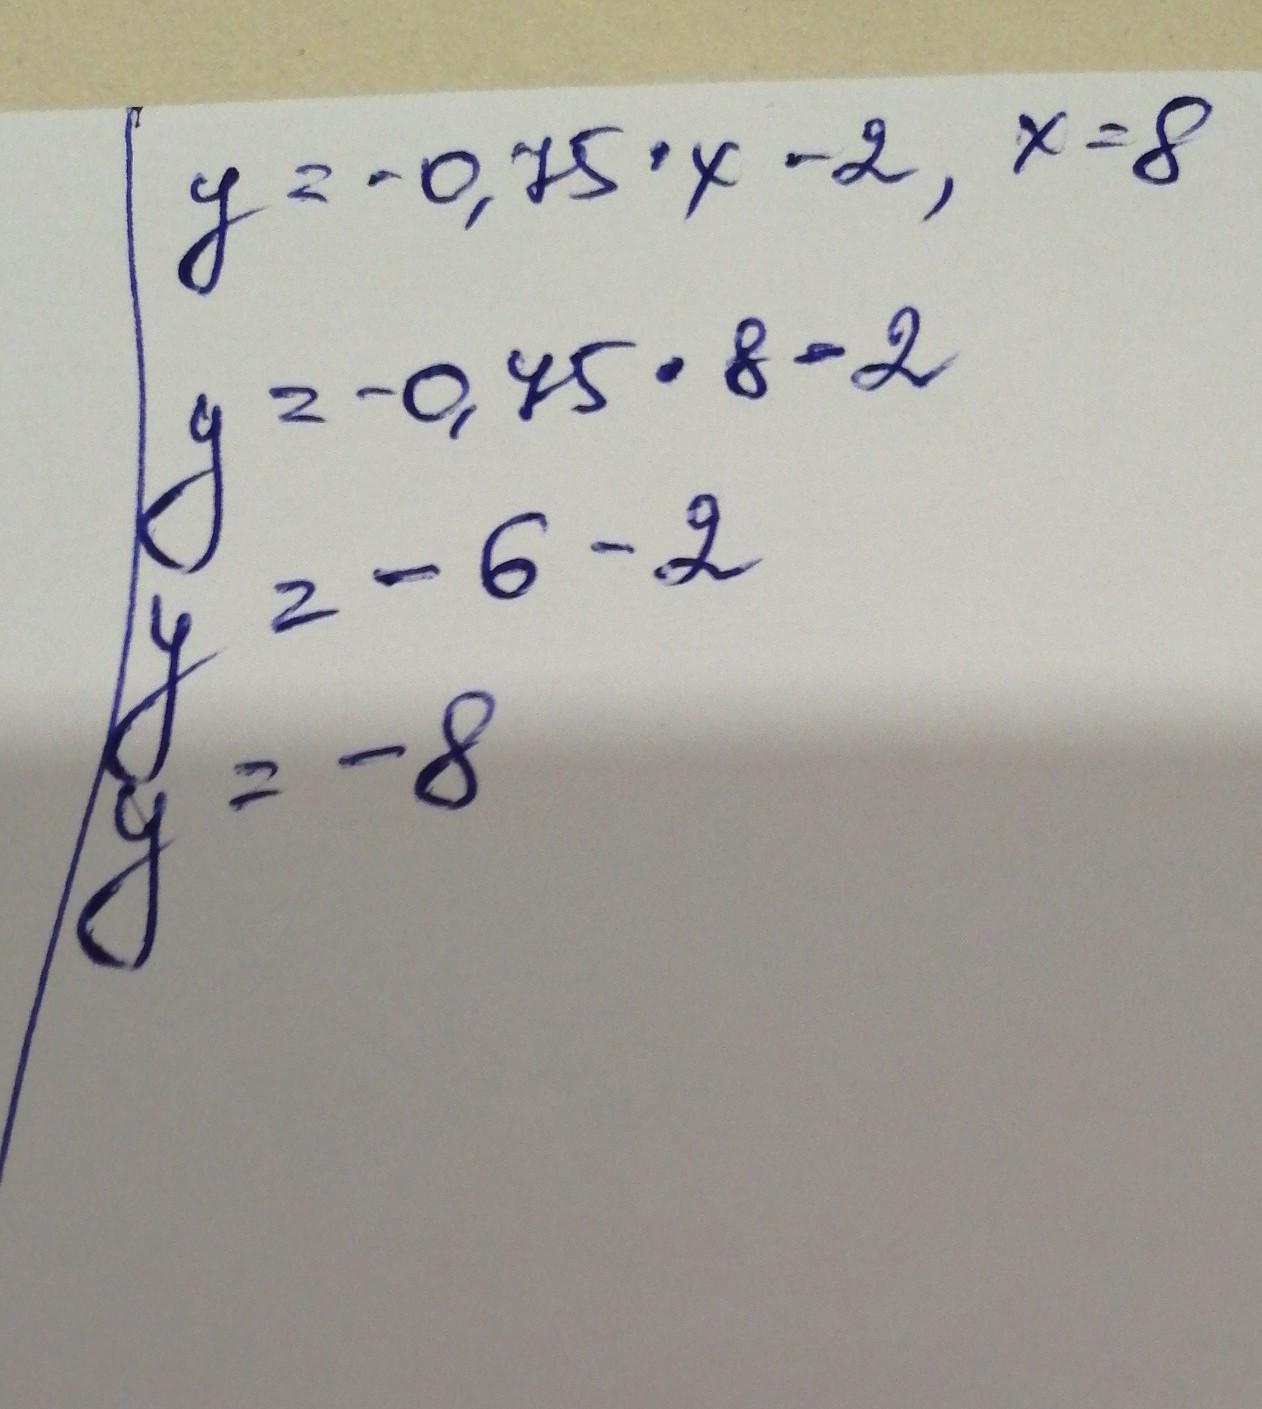 y = -0,75 · x - 2, x = 8
y = -0,75 · 8 - 2
y = - 6 - 2
y = - 8